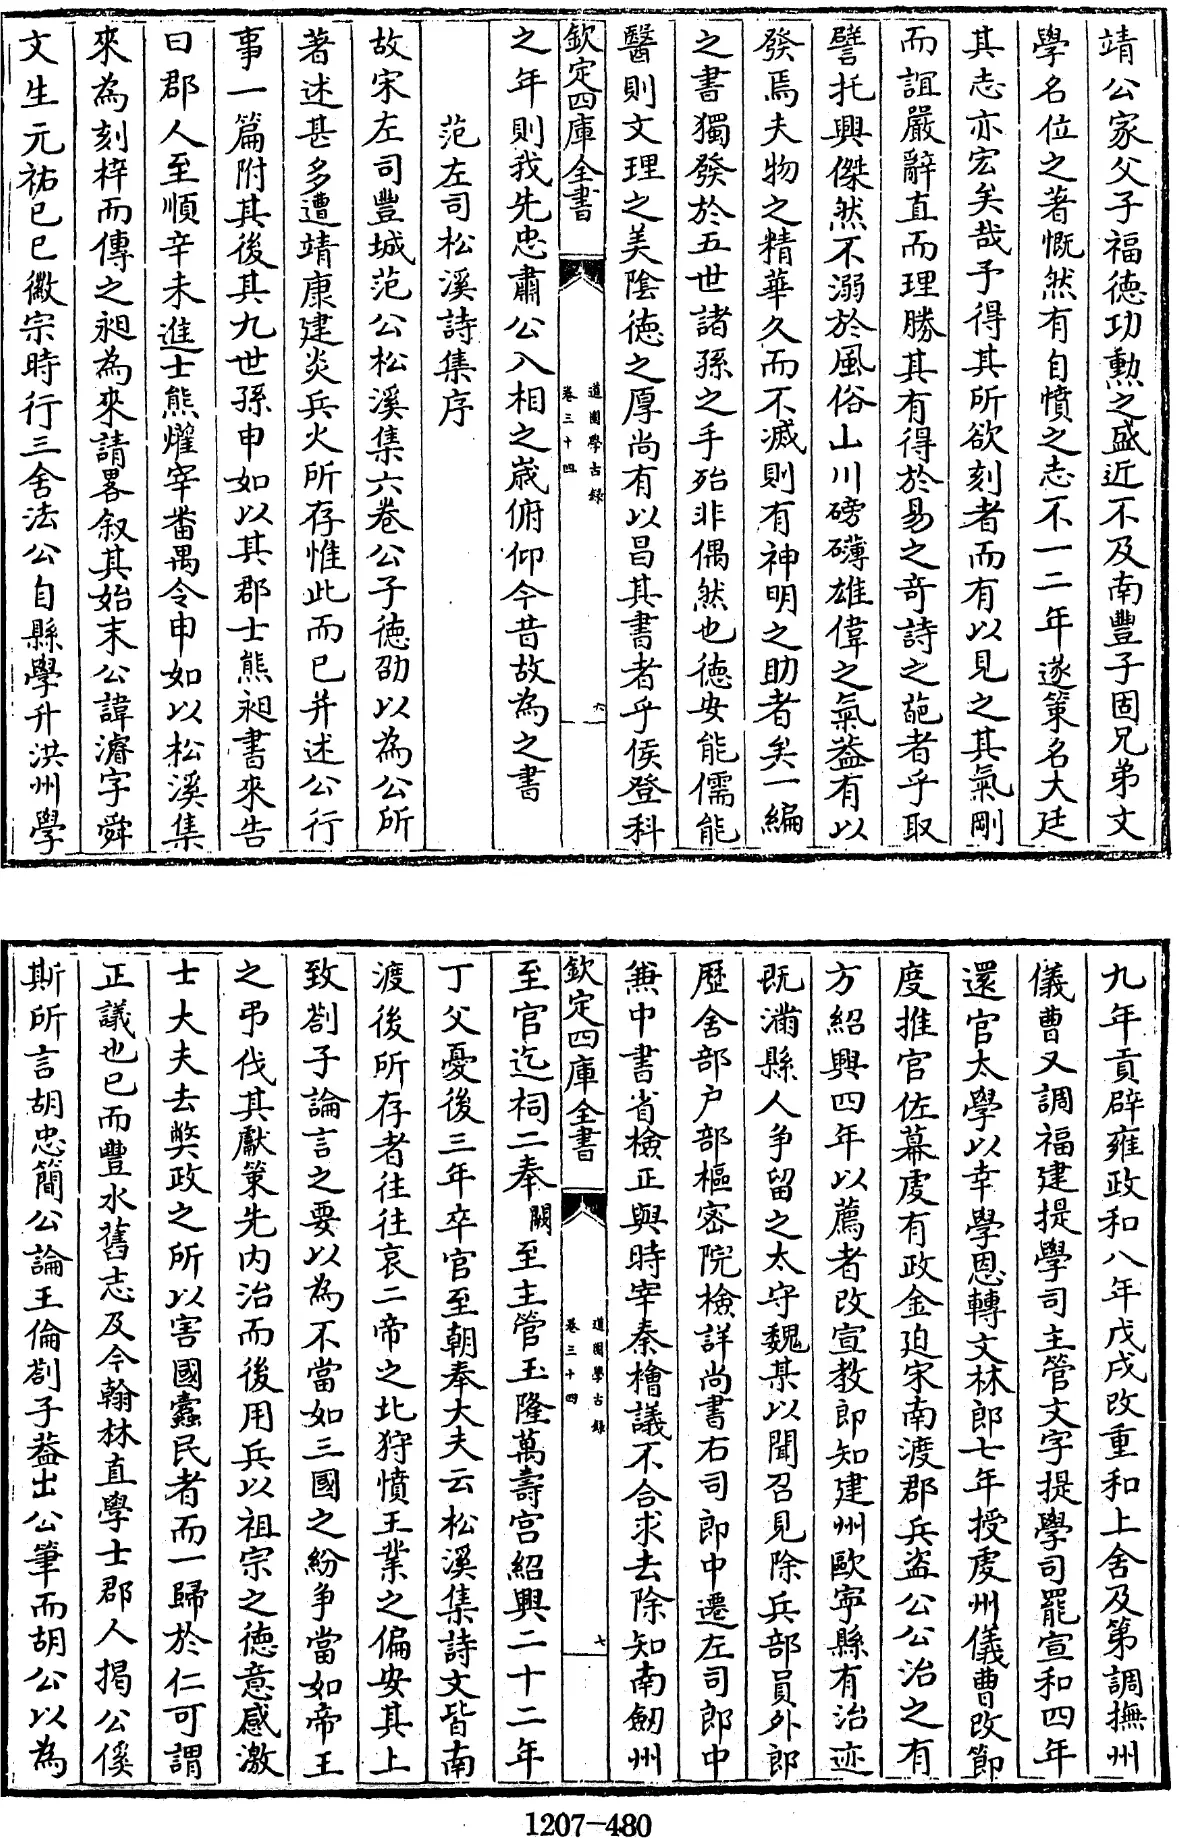 靖公家父子福德功勲之盛近不及南豐子固兄弟文
學名位之著慨然有自憤之志不一二年遂策名大廷
其志亦宏矣哉予得其所欲刻者而有以見之其氣剛
而誼嚴辭直而理勝其有得於易之奇詩之葩者乎取
譬托興傑然不溺於風俗山川磅礴雄偉之氣葢有以
發焉夫物之精華久而不滅則有神明之助者矣一編
之書獨發於五世諸孫之手殆非偶然也德安能儒能
醫則文理之美陰德之厚尚有以昌其書者乎侯登科
欽定四庫全書
道園學古録
卷三十四
六
之年則我先忠肅公入相之歳俯仰今昔故為之書
范左司松溪詩集序
故宋左司豐城范公松溪集六卷公子德劭以為公所
著述甚多遭靖康建炎兵火所存惟此而已并述公行
事一篇附其後其九世孫申如以其郡士熊昶書來告
曰郡人至順辛未進士熊燿宰畨禺令申如以松溪集
來為刻梓而傳之昶為來請畧叙其始末公諱濬字舜
文生元祐己巳徽宗時行三舍法公自縣學升洪州學
九年貢辟雍政和八年戊戌改重和上舍及第調撫州
儀曹又調福建提學司主管文字提學司罷宣和四年
還官太學以幸學恩轉文林郎七年授䖏州儀曹改節
度推官佐幕䖏有政金迫宋南渡郡兵盜公公治之有
方紹興四年以薦者改宣教郎知建州歐寧縣有治迹
既滿縣人爭留之太守魏某以聞召見除兵部員外郎
歴舍部户部樞密院檢詳尚書右司郎中遷左司郎中
兼中書省檢正與時宰秦檜議不合求去除知南劒州
欽定四庫全書
道園學古録
卷三十四
七
至官迄祠二奉闕至主管玉隆萬壽宫紹興二十二年
丁父憂後三年卒官至朝奉大夫云松溪集詩文皆南
渡後所存者往往哀二帝之北狩憤王業之偏安其上
致劄子論言之要以為不當如三國之紛爭當如帝王
之弔伐其獻策先内治而後用兵以祖宗之德意感激
士大夫去獘政之所以害國蠹民者而一歸於仁可謂
正議也已而豐水舊志及今翰林直學士郡人揭公傒
斯所言胡忠簡公論王倫劄子葢出公筆而胡公以為
1207-480